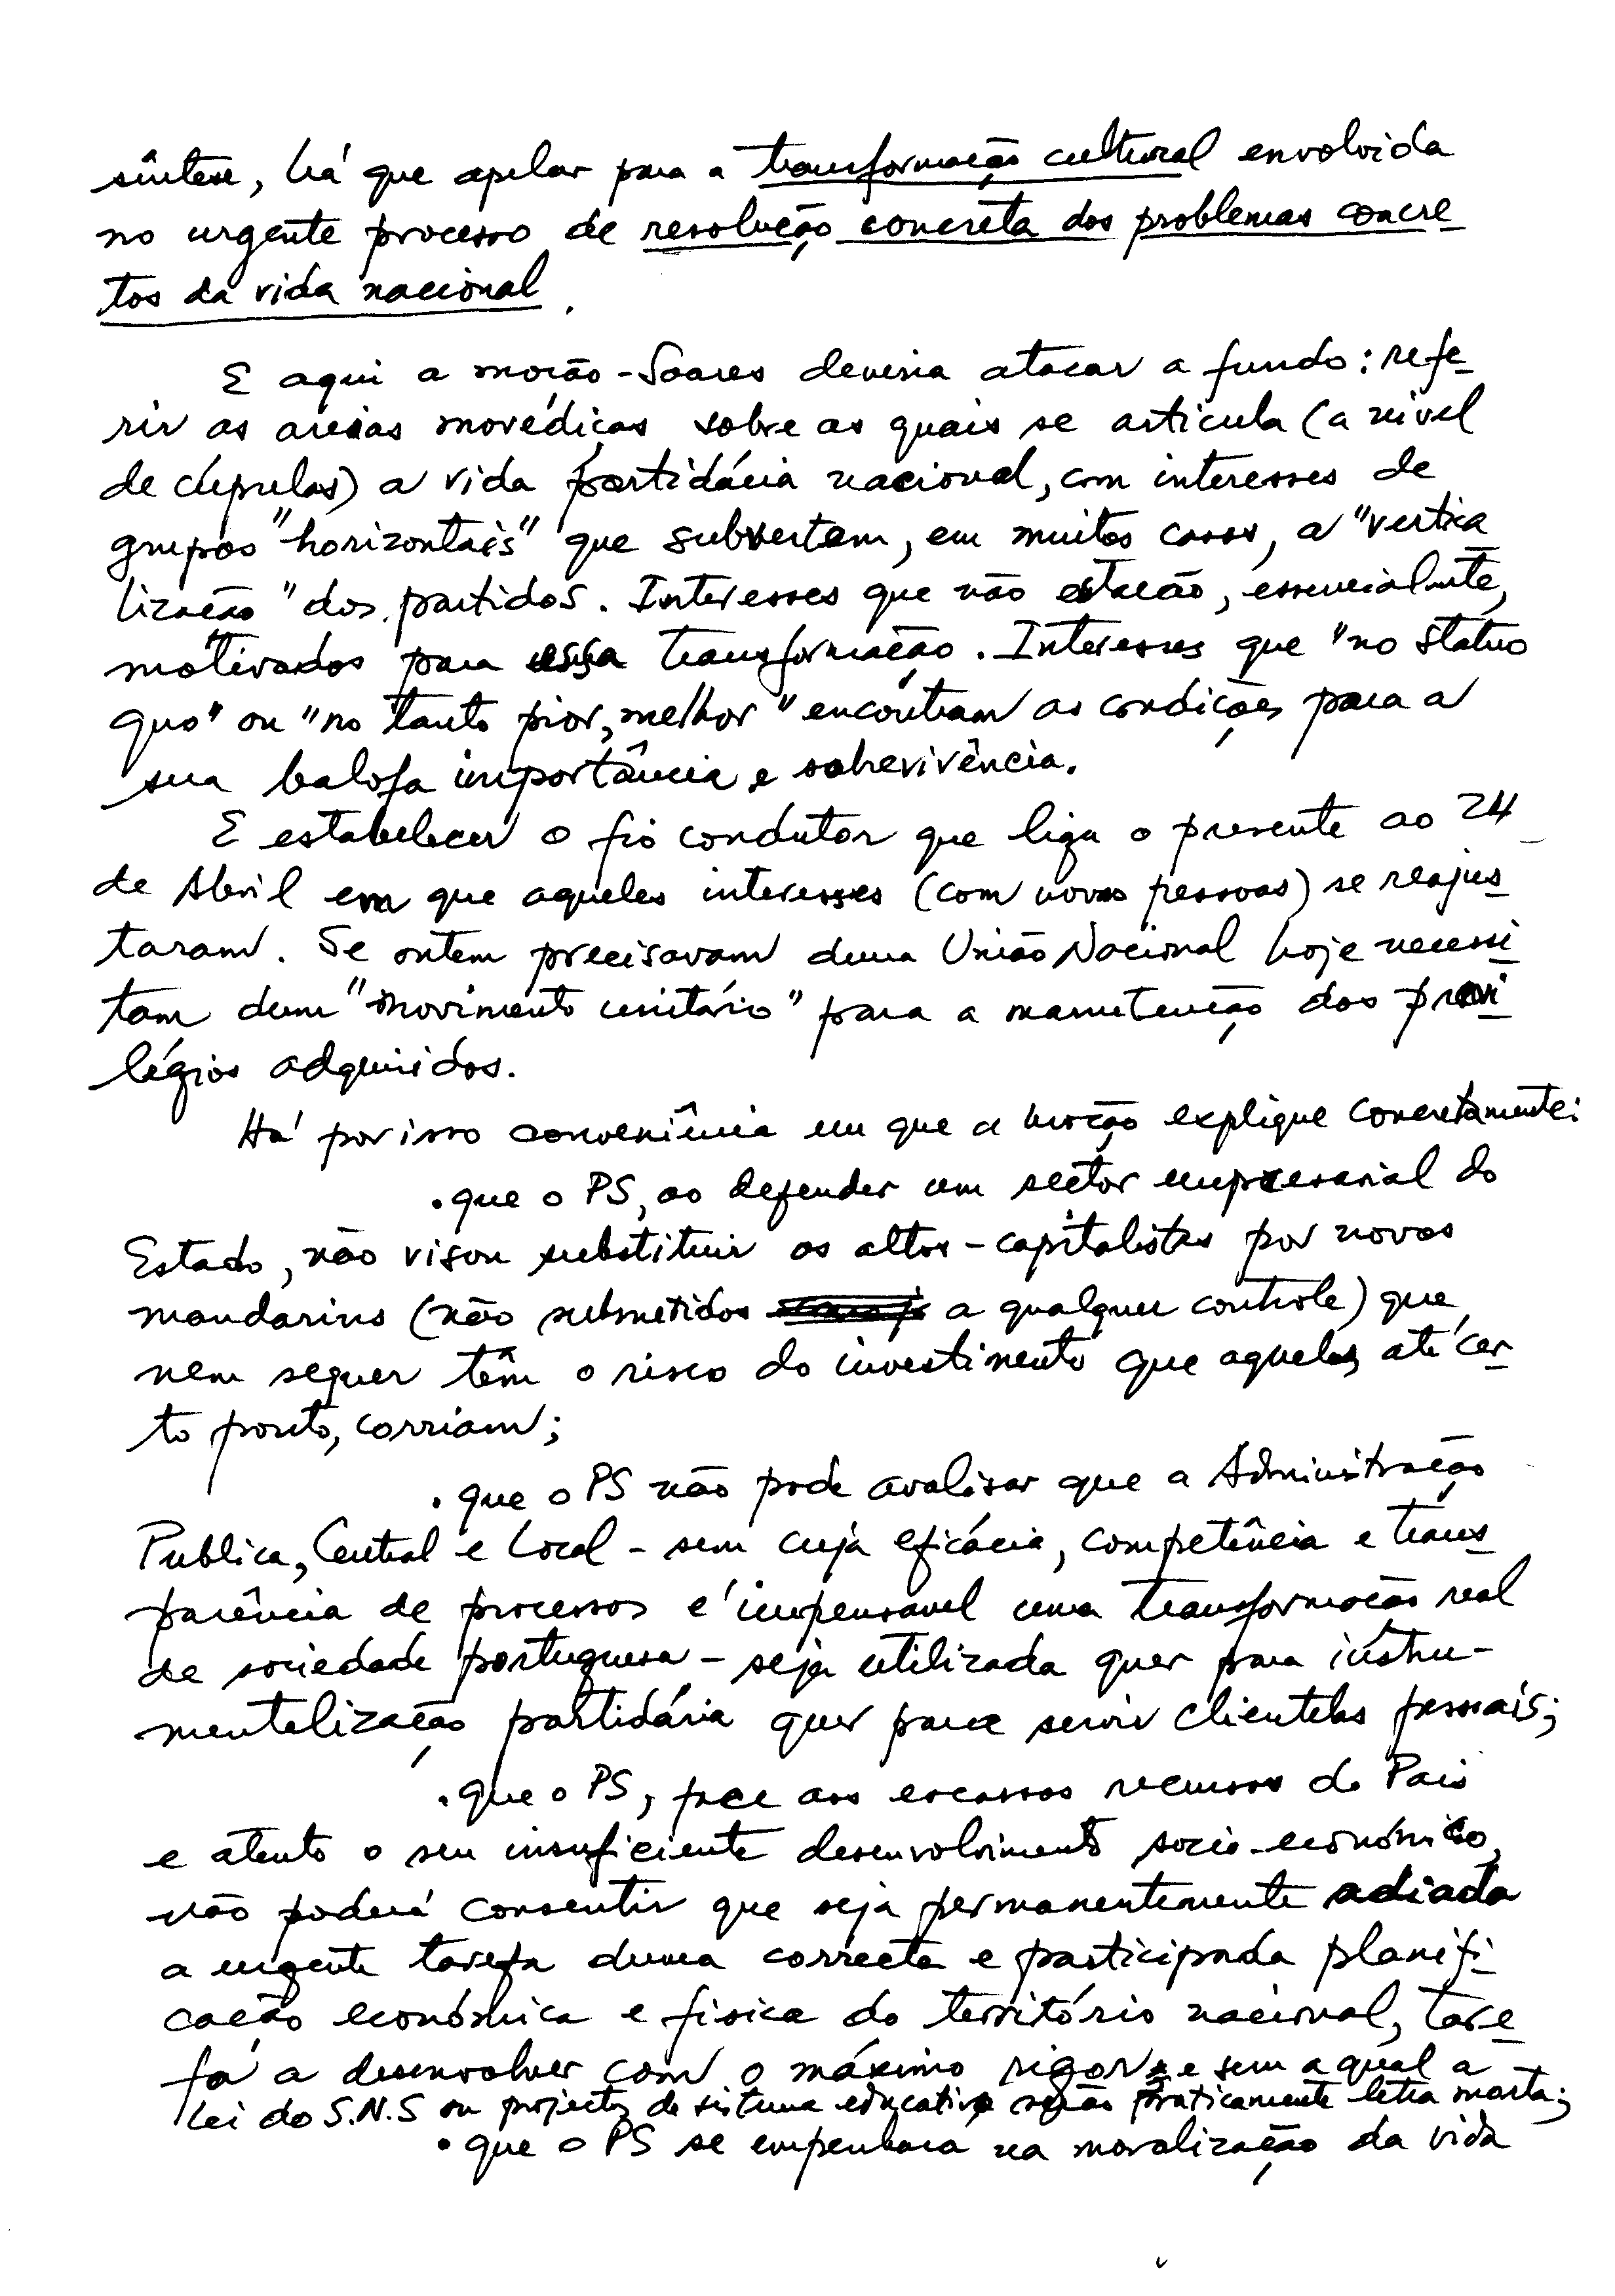 síntese, há que apelar para a transformação cultural envolvida
no urgente processo de resolução concreta dos problemas concre
tos da vida nacional.
E aqui a moção-Soares deveria atacar a fundo: refe
rir as areias movediças sobre as quais se articula (a nível
de cúpulas) a vida partidária nacional, com interesses de
grupos "horizontais" que subvertem, em muitos casos, a "vertica
lização" dos partidos. Interesses que não estarão, essencialmente,
motivados para essa transformação. Interesses que "no status
quo" ou "no tanto pior, melhor" encontram as condições para a
sua balofa importância e sobrevivência.
E estabelecer o fio condutor que liga o presente ao 24
de Abril em que aqueles interesses (com novas pessoas) se reajus
taram. Se ontem precisavam duma União Nacional hoje necessi
tam dum "movimento unitário" para a manutenção dos privi
légios adquiridos.
Há por isso conveniência em que a moção explique concretamente:
. que o PS, ao defender um sector empresarial do
Estado, não visou substituir os altos-capitalistas por novos
mandarins (não submetidos a qualquer controle) que
nem sequer têm o risco do investimento que aqueles, até cer
to ponto, corriam;
. que o PS não pode avalisar que a Administração
Publica, Central e Local - sem cuja eficácia, competência e trans
parência de processos é impensavel uma transformação real
de sociedade portuguesa - seja utilizada quer para instru-
mentalização partidária quer para servir clientelas pessoais;
. que o PS, face aos escassos recursos do Pais
e atento o seu insuficiente desenvolvimento socio-económico,
não poderá consentir que seja permanentemente adiada
a urgente tarefa duma correcta e participada planifi
cação económica e fisica do território nacional, tare
fa a desenvolver com o máximo rigor e sem a qual a
lei do S.N.S ou projectos de sistema educativo serão praticamente letra morta;
. que o PS se empenhará na moralização da vida